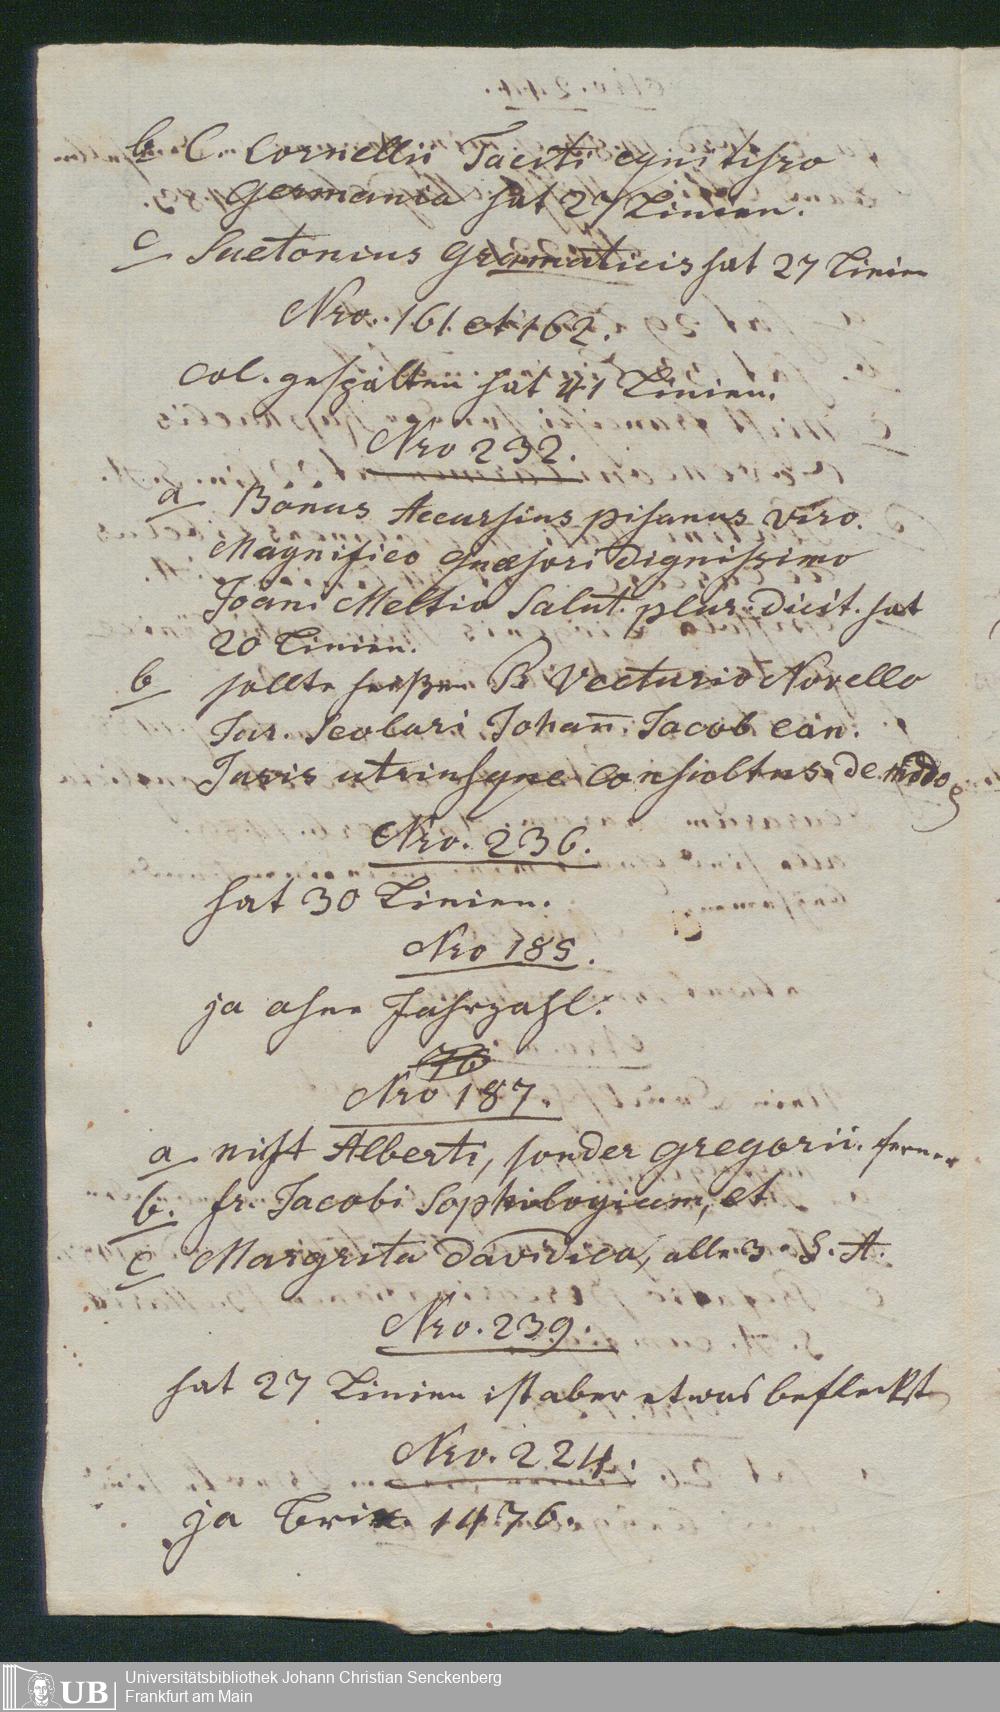 b C. Cornellii Taciti eqnitisro
Germania hat 27 Linien.
c Suetonius Gramaticis hat 27 Linien
Nro. 161 et 162.
Col. gespalten hat 41 Linien.
Nro 232.
a Bonus Accursius pisanus viro.
Magnifico quæsori Dignissimo
Joani Meltio Salut. plur. Dicit. hat
20 Linien.
b sollte heißen Vecturio Novello
Jur. Scolari Johan̄. Jacob can.
Juris utriusque Consioltus. De modo
Nro. 236.
hat 30 Linien.
Nro 185.
ja ohne Jahrzahl.
Nro 187.
a nicht Alberti, sonder gregorii. ferner
b. fr. Jacobi Sophilogium, et
c Margrita Davidica, alle 3 S. A.
Nro. 239.
hat 27 Linien ist aber etwas befleckt
Nro. 224.
ja Brix. 1476.
UB Universitätsbibliothek Johann Christian Senckenberg
Frankfurt am Main